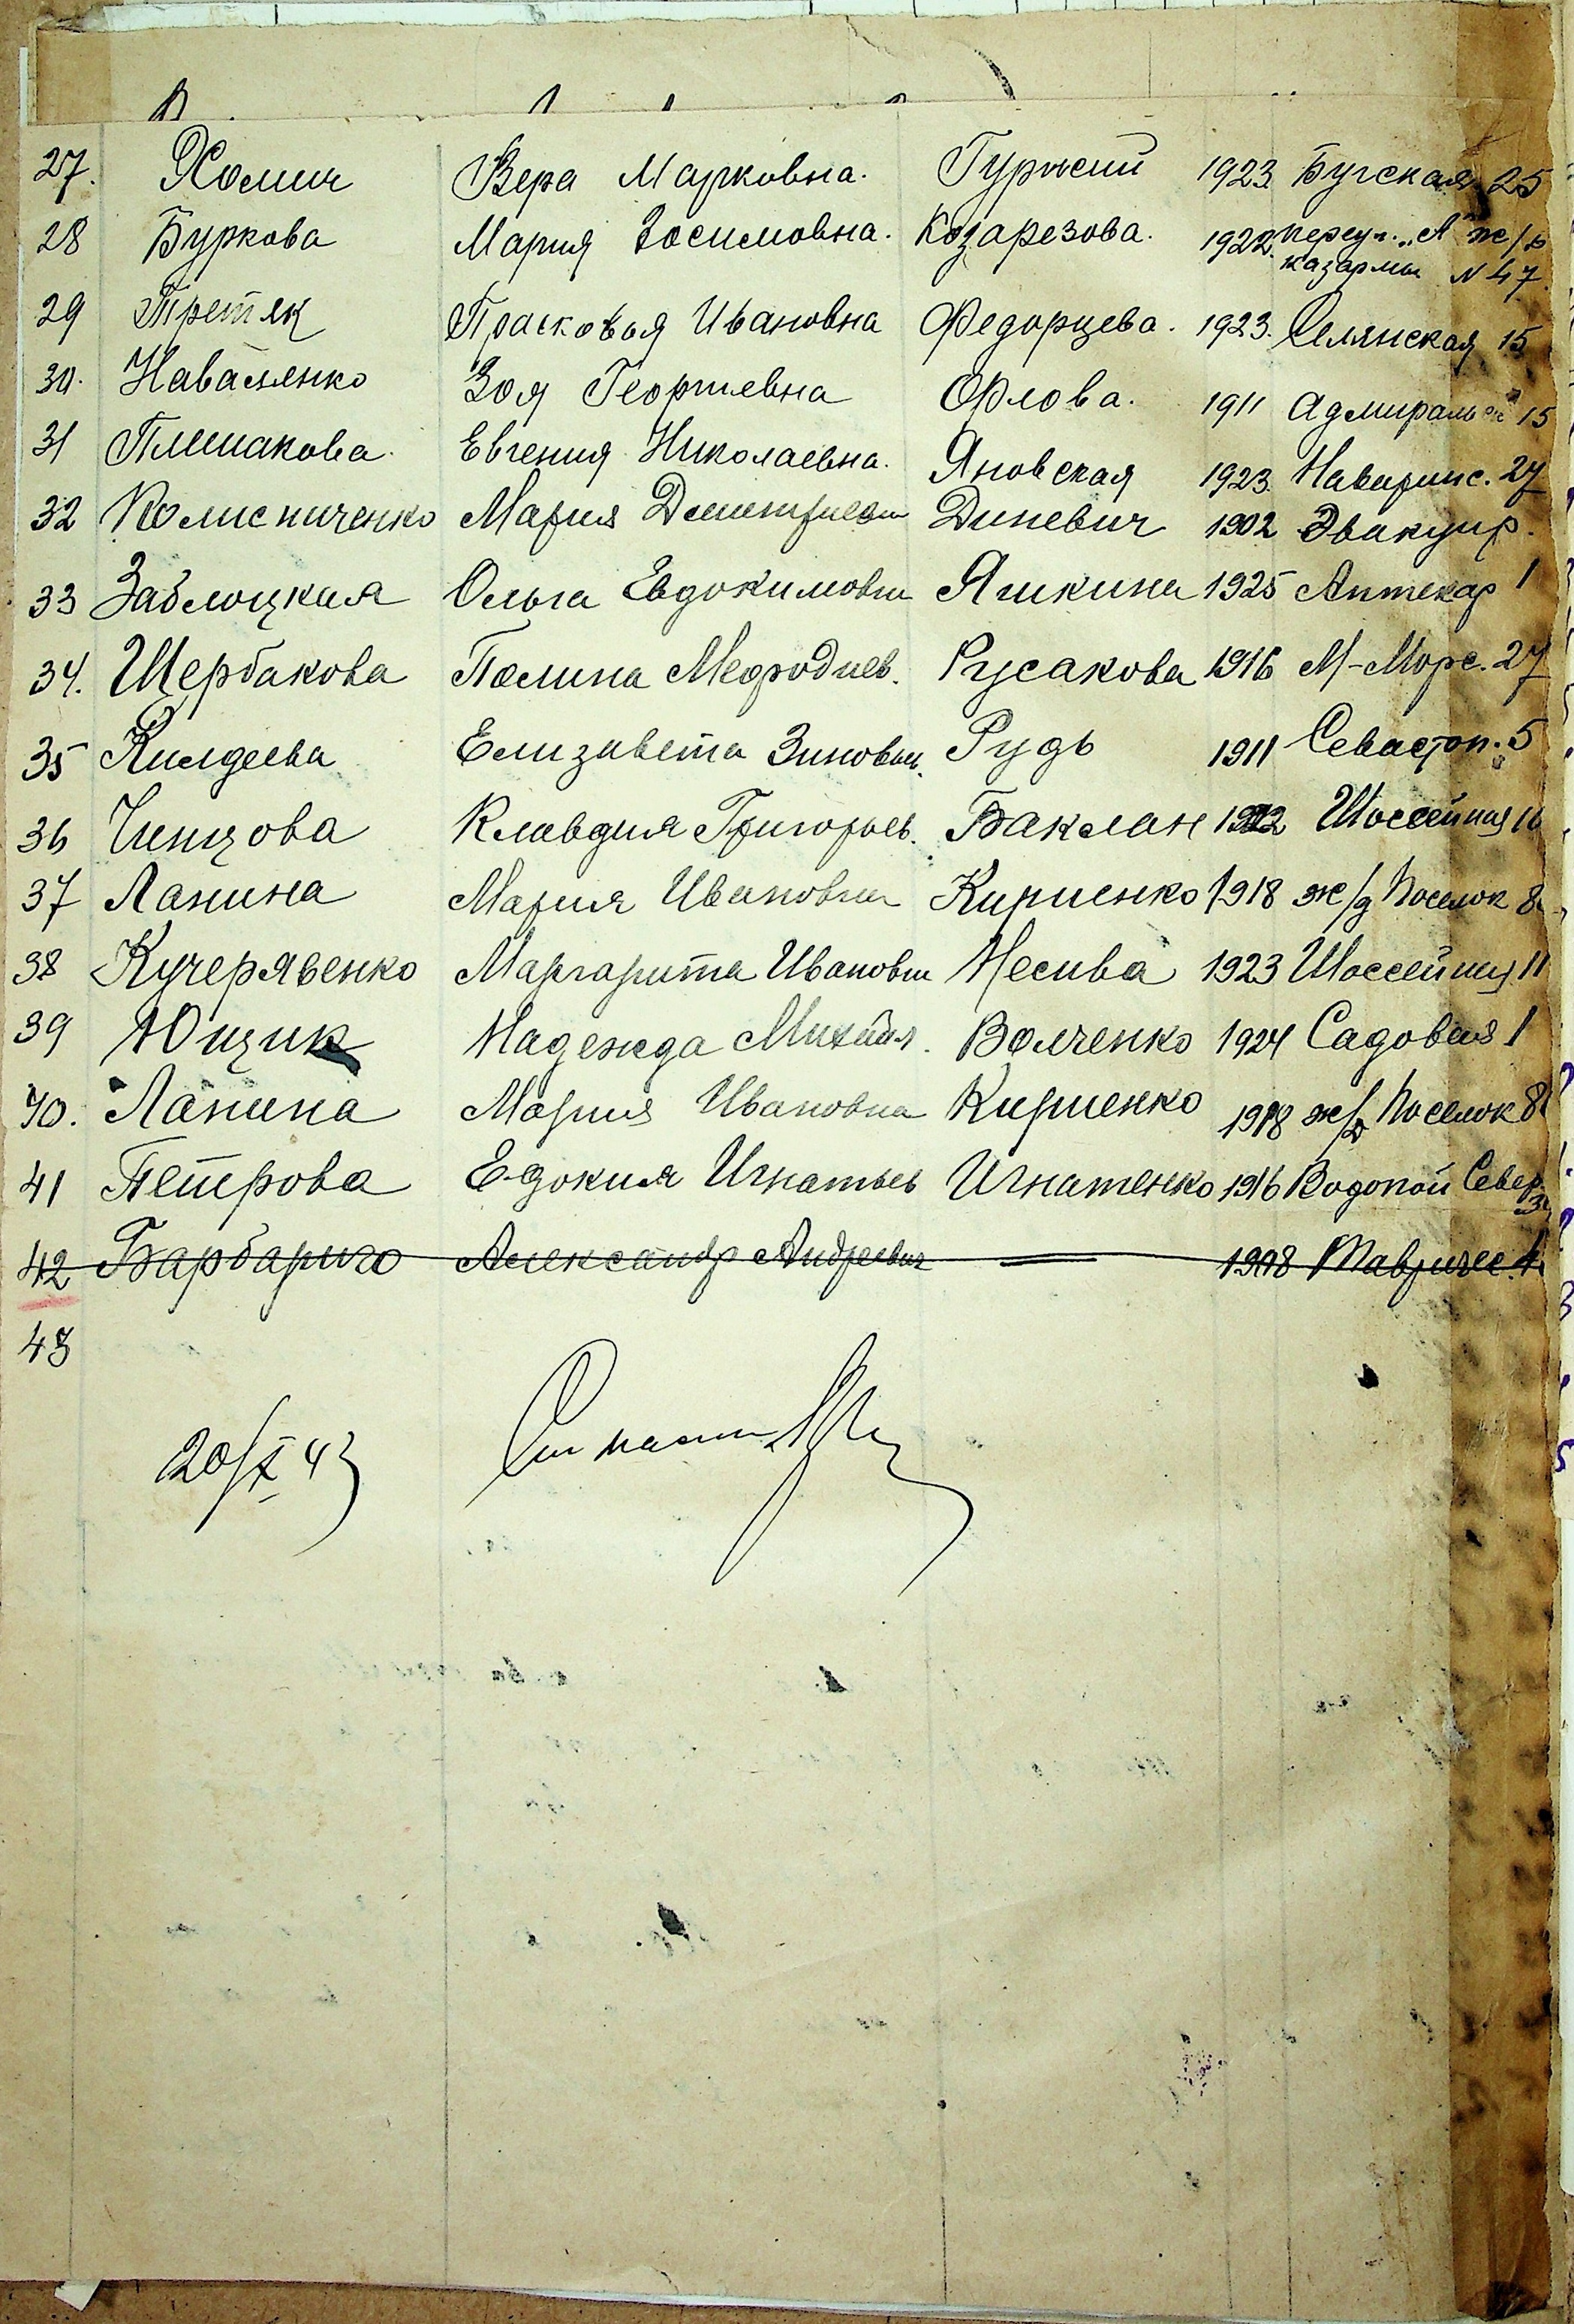 27. Хомич Вера Марковна. Гурский 1923. Бугская 25
28 Буркова Мария Зосимовна. Козарезова. 1922. переул. "А" ж/д
казармы N 47.
29 Третяк Прасковья Ивановна Федорцева. 1923. Селянская 15
30. Наваленко Зоя Георгиевна Орлова. 1911 Адмиральск 15
31 Плешакова. Евгения Николаевна. Яновская 1923. Наваринс. 27
32 Колисниченко Мария Дмитриевн Диневич 1902 Эвакуир.
33 Заблоцкая Ольга Евдокимовн Яшкина 1925 Аптекар 1
34. Щербакова Полина Мефодиев. Русакова 1916 М-Морс. 27
35 Килдеева Елизавета Зиновьи. Рудь 1911 Севастоп. 5
36 Чинцова Клавдия Григорьев. Баклан 1912 Шоссейная 16
37 Лапина Мария Ивановн Кириенко 1918 ж/д поселок 8
38 Кучерявенко Маргарита Ивановн Несива 1923 Шоссейная 11
39 Ющик Надежда Михайл. Волченко 1924 Садовая 1
40. Лапина Мария Ивановна Кириенко 1918 ж/д поселок 8
41 Петрова Едокия Игнатьев Игнатенко 1916 Водопой Север.
42 Барбариго Александр Андреевич 1908 Тавричес. 4
43
20/X 43